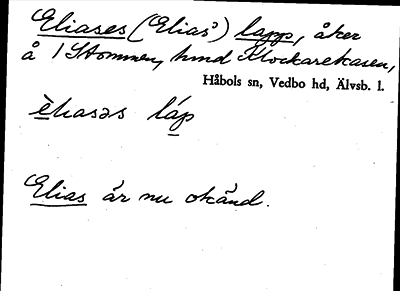 Eliases (Elias') lapp, åker
å 1 Stommen, hmd Klockarekasen,
Håbols sn, Vedbo hd, Älvsb. l.
èliasəs láp
Elias är nu okänd.